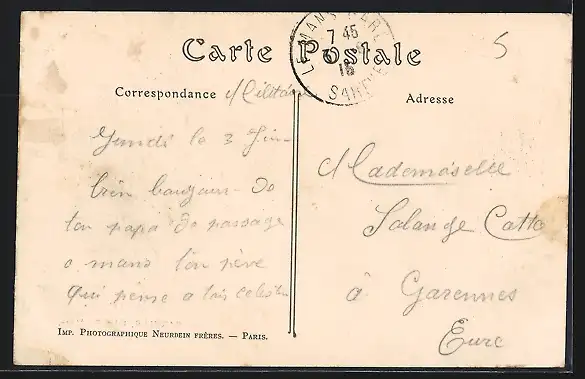 Carte Postale
LE MANS GARE
7 45
3
15
SARTHE
5
Correspondance Militaire
Adresse
Jeudi le 3 Juin
bonjour do
ton papa do passage
o mans ton père
qui pense a toi celestin
Mademoiselle
Solange Catto
à Garennes
Eure
IMP. PHOTOGRAPHIQUE NEURDEIN FRÈRES. — PARIS.